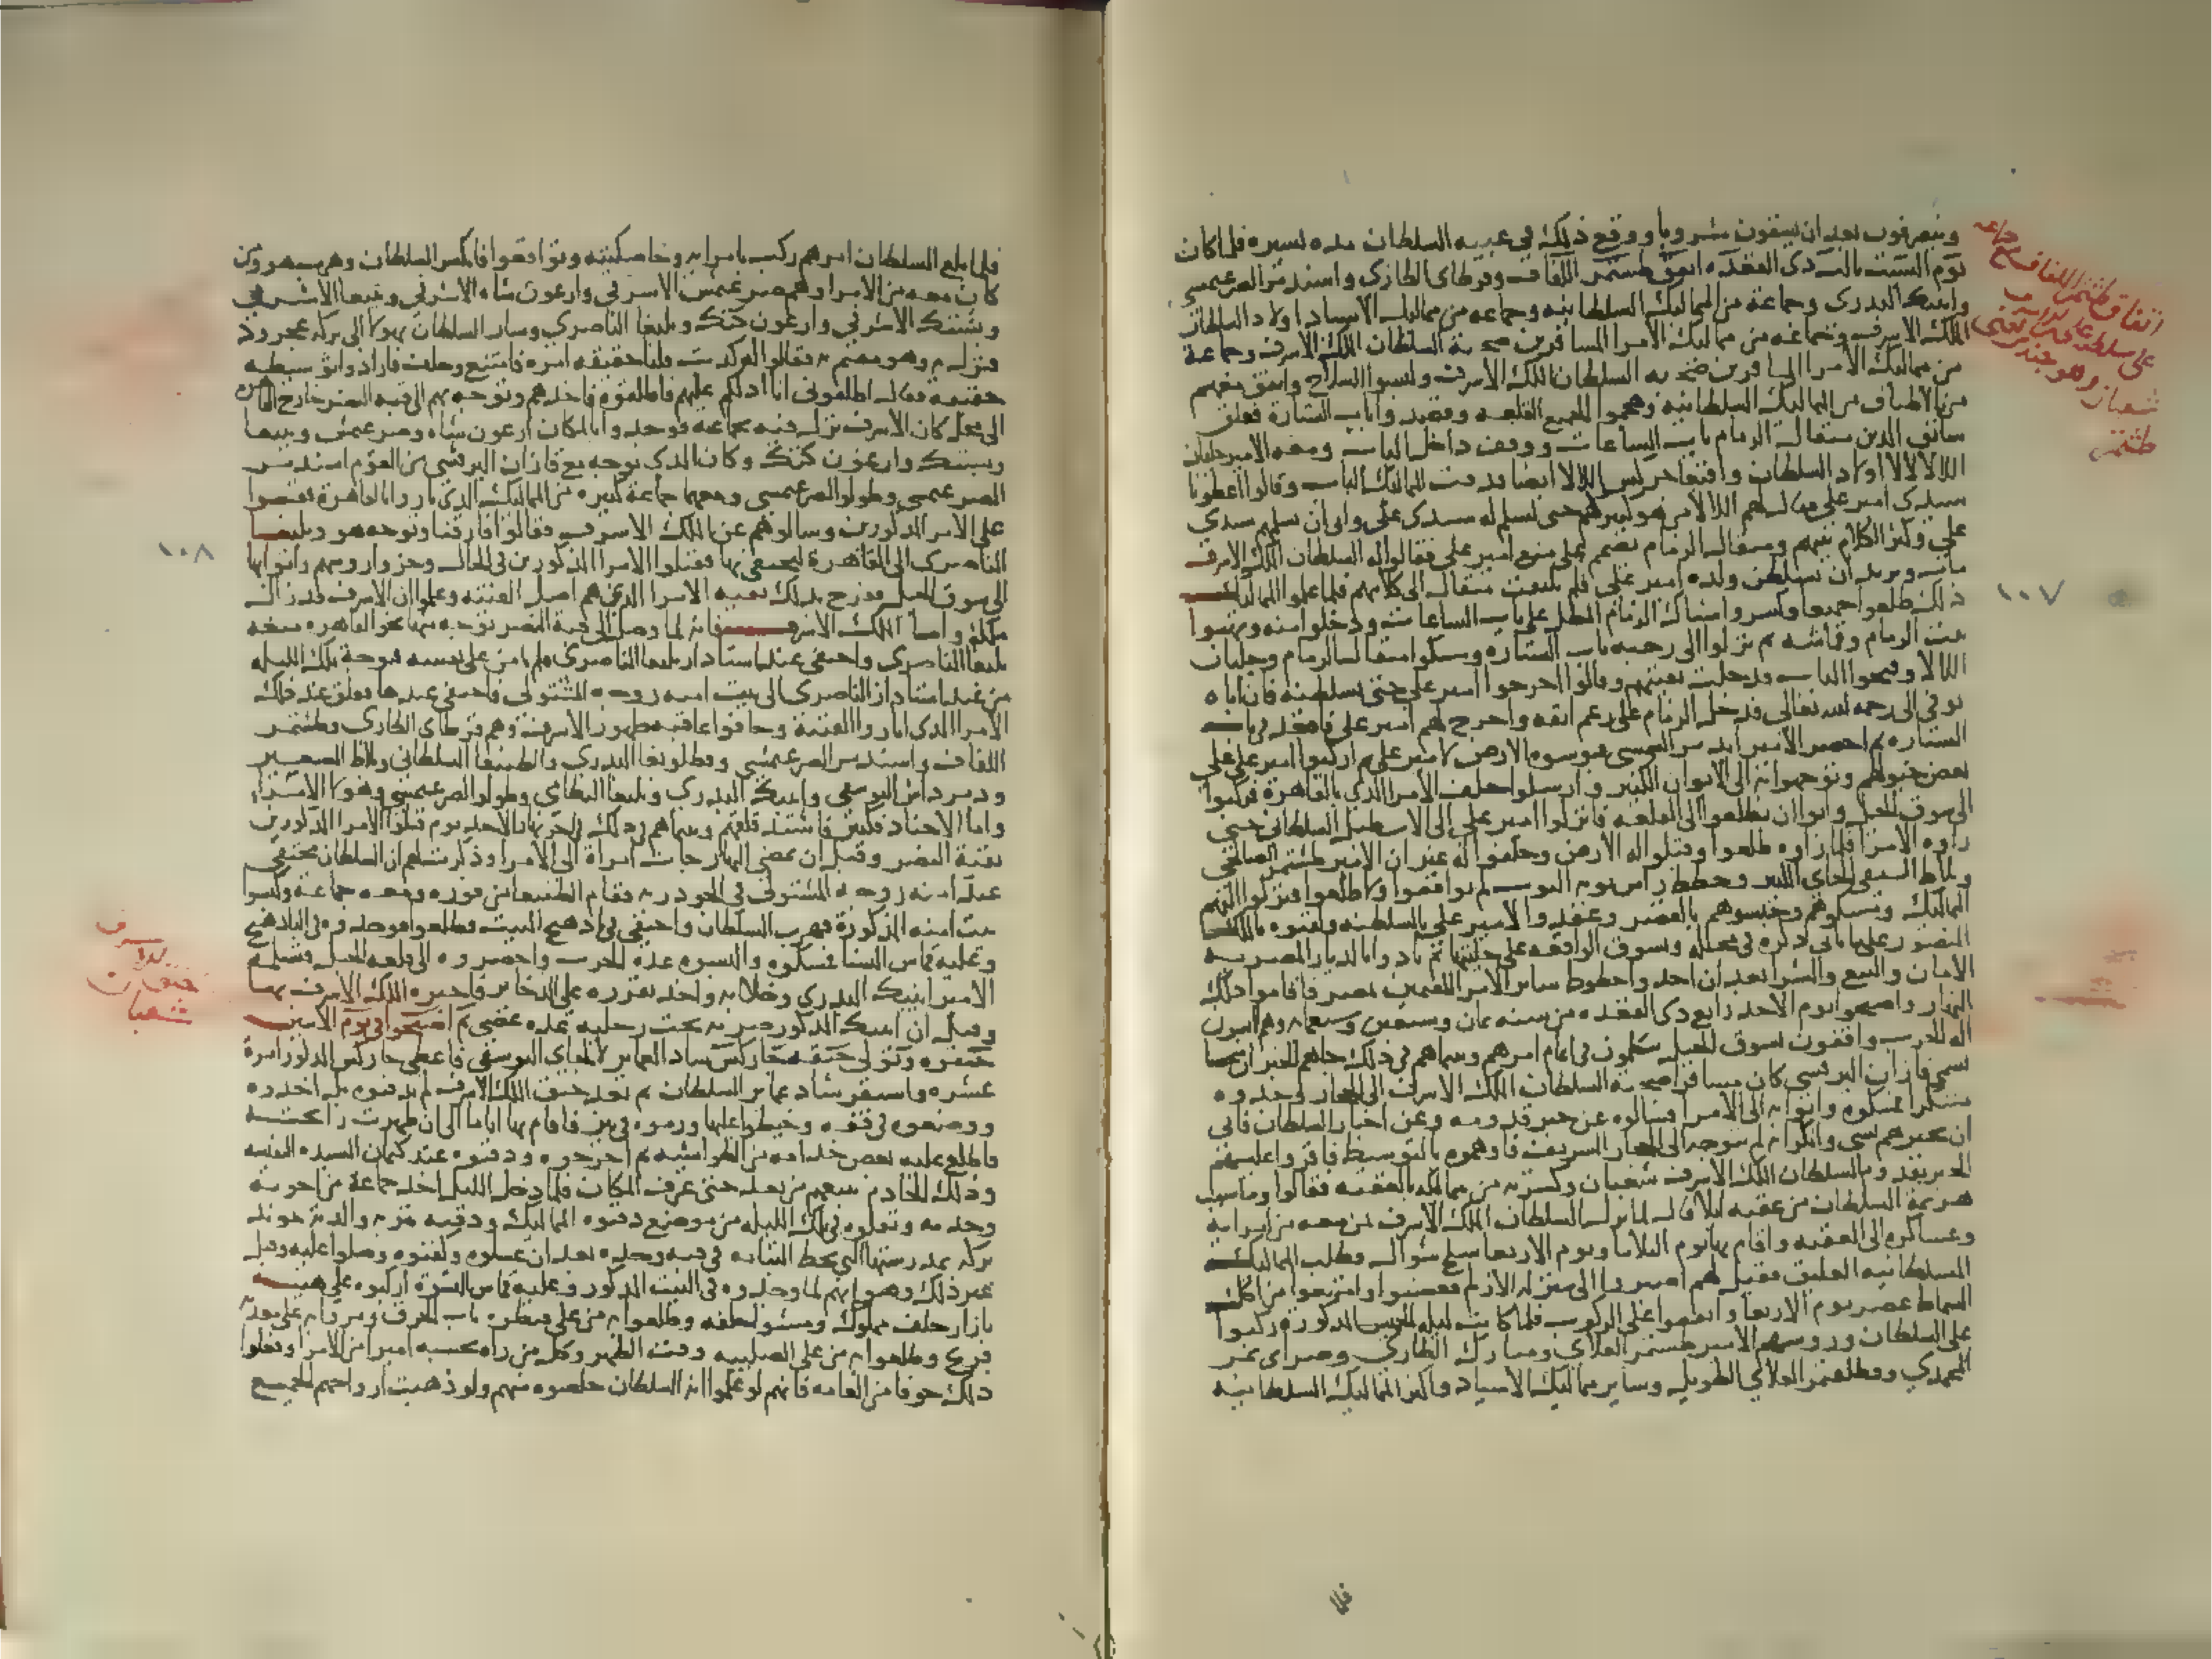 وينصرفون بعد ان ينفقون مشروبا ووقع ذلك في غيبه السلطان مده يسيره فلما كان
يوم السبت ثالث ذي القعده اتفق طشتمر اللفاف وقرطاي الطازي واسندمر الصرغتمشي
واينبك البدري وجماعة من المماليك السلطانيه وجماعه من مماليك الاسياد اولاد السلطان
الملك الاشرف وجماعه من مماليك الامرا المسافرين صحبة السلطان الملك الاشرف وجماعة
من مماليك الامرا المسافرين صحبه السلطان الملك الاشرف ولبسوا السلاح واتفق معهم
من الاطباق من المماليك السلطانيه وهجموا الجميع القلعه وقصدوا باب الستارة فغلق
سابق الدين مثقال الزمام باب الساعات ووقف داخل الباب ومعه الامير جلبان
اللالا لالا اولاد السلطان واقبغا جركس اللالا ايضا فدقت المماليك الباب وقالوا اعطونا
سيدي امير علي فقال لهم اللالا من هو كبيركم حتى نسلم له سيدي علي وابى ان يسلم سيدي
علي وكثر الكلام بينهم ومثقال الزمام يصمم على منع امير علي فقالوا له السلطان الملك الاشرف
مات ونريد ان نسلطن ولده امير علي فلم يلتفت مثقال الى كلامهم فلما علموا المماليك
ذلك طلعوا جميعا وكسروا شباك الزمام المطل على باب الساعات ودخلوا منه ونهبوا
بيت الزمام وقماشه ثم نزلوا الى رحبه باب الستاره ومسكوا مثقال الزمام وجلبان
اللالا وفتحوا الباب ودخلت بقيتهم وقالوا اخرجوا امير علي حتى نسلطنه فان اباه
توفي الى رحمه الله تعالى فدخل الزمام على رغم انفه واخرج لهم امير علي فاقعد في باب
الستاره ثم احضر الامير ايدمر الشمسي فبوسوه الارض لامير علي ثم اركبوا امير علي على
بعض خيولهم وتوجهوا به الى الايوان الكبير وارسلوا خلف الامرا الذي بالقاهرة فركبوا
الى سوق الخيل وابوا ان يطلعوا الى القلعه فانزلوا امير علي الى الاسطبل السلطاني حتى
راوه الامرا فلما راوه طلعوا وقبلوا له الارض وحلفوا له غير ان الامير طشتمر الصالحي
وبلاط السيفي الجاي الكبير وحطط راس نوبه النوب لم يوافقوا ولا طلعوا فنزلوا اليهم
المماليك ومسكوهم وحبسوهم بالقصر وعقدوا لامير علي بالسلطنه ولقبوه بالملك
المنصور على ما ياتي ذكره في محله ونسوق الواقعه على جليتها ثم نادوا بالديار المصريه
الامان والبيع والشرا بعد ان اخذوا خطوط ساير الامرا المقيمين بمصر فاقاموا ذلك
النهار واصبحوا يوم الاحد رابع ذي القعده من سنه ثمان وسبعين وسبعمايه وهم لابسون
اله الحرب واقفون بسوق الخيل يتكلمون في اتمام امرهم وبينماهم في ذلك جاهم الخبر ان شخصا
يسمى قازان البرقشي كان مسافرا صحبة السلطان الملك الاشرف الى الحجاز فوجدوه
متنكرا فمسكوه واتوا به الى الامرا فسالوه عن خبر قدومه وعن اخبار السلطان فابى
ان يخبرهم بشي وانكر انه لم يتوجه الى الحجاز الشريف فاوهموه بالتوسيط فاقر واعلمهم
الخبر بقدوم السلطان الملك الاشرف شعبان وكسرته من مماليكه بالعقبه فقالوا وما سبب
هزيمة السلطان من عقبه ايلا قال لما نزل السلطان الملك الاشرف بمن معه من امرايه
وعساكره الى العقبه واقام بها يوم الثلاثا ويوم الاربعا سلخ شوال وطلب المماليك
السلطانيه العليق فقيل لهم اصبروا الى منزله الازلم فغضبوا وامتنعوا من اكل
السماط عصر يوم الاربعا واتفقوا على الركوب فلما كانت ليله الخميس المذكورة ركبوا
على السلطان وروسهم الامير طشتمر العلاي ومبارك الطازي وصراي تمر
المحمدي وقطلقتمر العلاي الطويل وساير مماليك الاسياد واكثر المماليك السلطانيه
فلما
اتفاق طشتمر اللفاف مع جماعه
على سلطنه علي بن الاشرف
شعبان
طشتمر
١٠٧
فلما بلغ السلطان امرهم ركب بامرايه وخاصكيته وتواقعوا فانكسر السلطان وهرب هو ومن
كان معه من الامرا وهم صرغتمش الاشرفي وارغون شاه الاشرفي وبيبغا الاشرفي
وبشتك الاشرفي وارغون كتك ويلبغا الناصري وسار السلطان بهولا الى بركه عجرود
فنزل بها وهو مقيم بها فقالوا له كذبت قلنا حقيقه امره فامتنع وحلف فارادوا توسيطه
حقيقه فقال اطلقوني انا ادلكم عليهم فاطلقوه فاخذهم وتوجه بهم الى قبه النصر خارج القاهره
الى محل كان الاشرف نزل فيه بجماعة فوجدوا بالمكان ارغون شاه وصرغتمش وبيبغا
وبشتك وارغون كتك وكان الذي توجه مع قازان البرقشي من القوم اسندمر
الصرغتمشي وطولو الصرغتمشي ومعهما جماعة كبيره من المماليك الذي ثاروا بالقاهرة فقبضوا
على الامرا المذكورين وسالوهم عن الملك الاشرف فقالوا فارقنا وتوجه هو ويلبغا
الناصري الى القاهرة ليختفي بها فقتلوا الامرا المذكورين في الحال وحزوا روسهم واتوا بها
الى سوق الخيل ففرح بذلك بقيه الامرا الذين هم اصل الفتنه وعلموا ان الاشرف قد زال
ملكه واما الملك الاشرف فانه لما وصل الى قبة النصر توجه منها نحو القاهره معه
يلبغا الناصري واختفى عند استادار يلبغا الناصري فلم يامن على نفسه فتوجه تلك الليله
من عند استادار الناصري الى بيت امنه زوجه المشتولي فاختفى عندها فقلق عند ذلك
الامرا الذي اثاروا الفتنة وخافوا عاقبه ظهور الاشرف وهم قرطاي الطازي وطشتمر
اللفاف واسندمر الصرغتمشي وقطلوبغا البدري والطنبغا السلطاني وبلاط الصغير
ودمرداش اليوسفي واينبك البدري ويلبغا النظامي وطولو الصرغتمشي وهولا الامرا
واما الاجناد فكثير فاشتد قلقهم وبيناهم في ذلك في اخر نهار الاحد يوم قتلوا الامرا المذكورين
بقبة النصر وقبل ان يمضي النهار جات امراة الى الامرا وذكرت لهم ان السلطان مختفي
عند امنه زوجه المشتولي في الجودريه فقام الطنبغا من فوره ومعه جماعة وكبسوا
بيت امنه المذكورة فهرب السلطان واختفى في بادهنج البيت فطلعوا فوجدوه في البادهنج
وعليه قماش النسا فمسكوه والبسوه عدة الحرب واحضروه الى قلعه الجبل فتسلمه
الامير اينبك البدري وخلا به واخذ يقرره على الذخاير فاخبره الملك الاشرف بها
وقيل ان اينبك المذكور ضربه تحت رجليه عده عصي ثم اصبحوا في يوم الاثنين
خنقوه وتولى خنقه جاركس شاد العماير لالجاي اليوسفي فاعطي جاركس المذكور امرة
عشره واستقر شاد عماير السلطان ثم بعد خنق الملك الاشرف لم يدفنوه بل اخذوه
ووضعوه في قفه وخيطوا عليها ورموه في بير فاقام بها اياما الى ان ظهرت رايحته
فاطلع عليه بعض خدامه من الطواشيه ثم اخرجوه ودفنوه عند كيمان السيده النفيسه
وذلك الخادم يتبعهم من بعد حتى عرف المكان فلما دخل الليل اخذ جماعة من اخوته
وخدمه ونقلوه في تلك الليله من موضع دفنوه المماليك ودفنه بتربه والدته خوند
بركه بمدرستها التي بخط التبانه في قبه وحده بعد ان غسلوه وكفنوه وصلوا عليه وقيل
غير ذلك وهو انهم لما وجدوه في البيت المذكور وعليه قماش النسوة اركبوه على هيئه
بازار خلف مملوك ومشوا خلفه وطلعوا به من على قنطره باب الخرق ومروا به على بعد
فرع وطلعوا به من على الصليبيه وقت الظهر وكل من راه يحسبه اميرا من الامرا وفعلوا
ذلك خوفا من العامه فانهم لو علموا انه السلطان خلصوه منهم ولو ذهبت ارواحهم الجميع
١٠٨
خنق الاشرف
شعبان